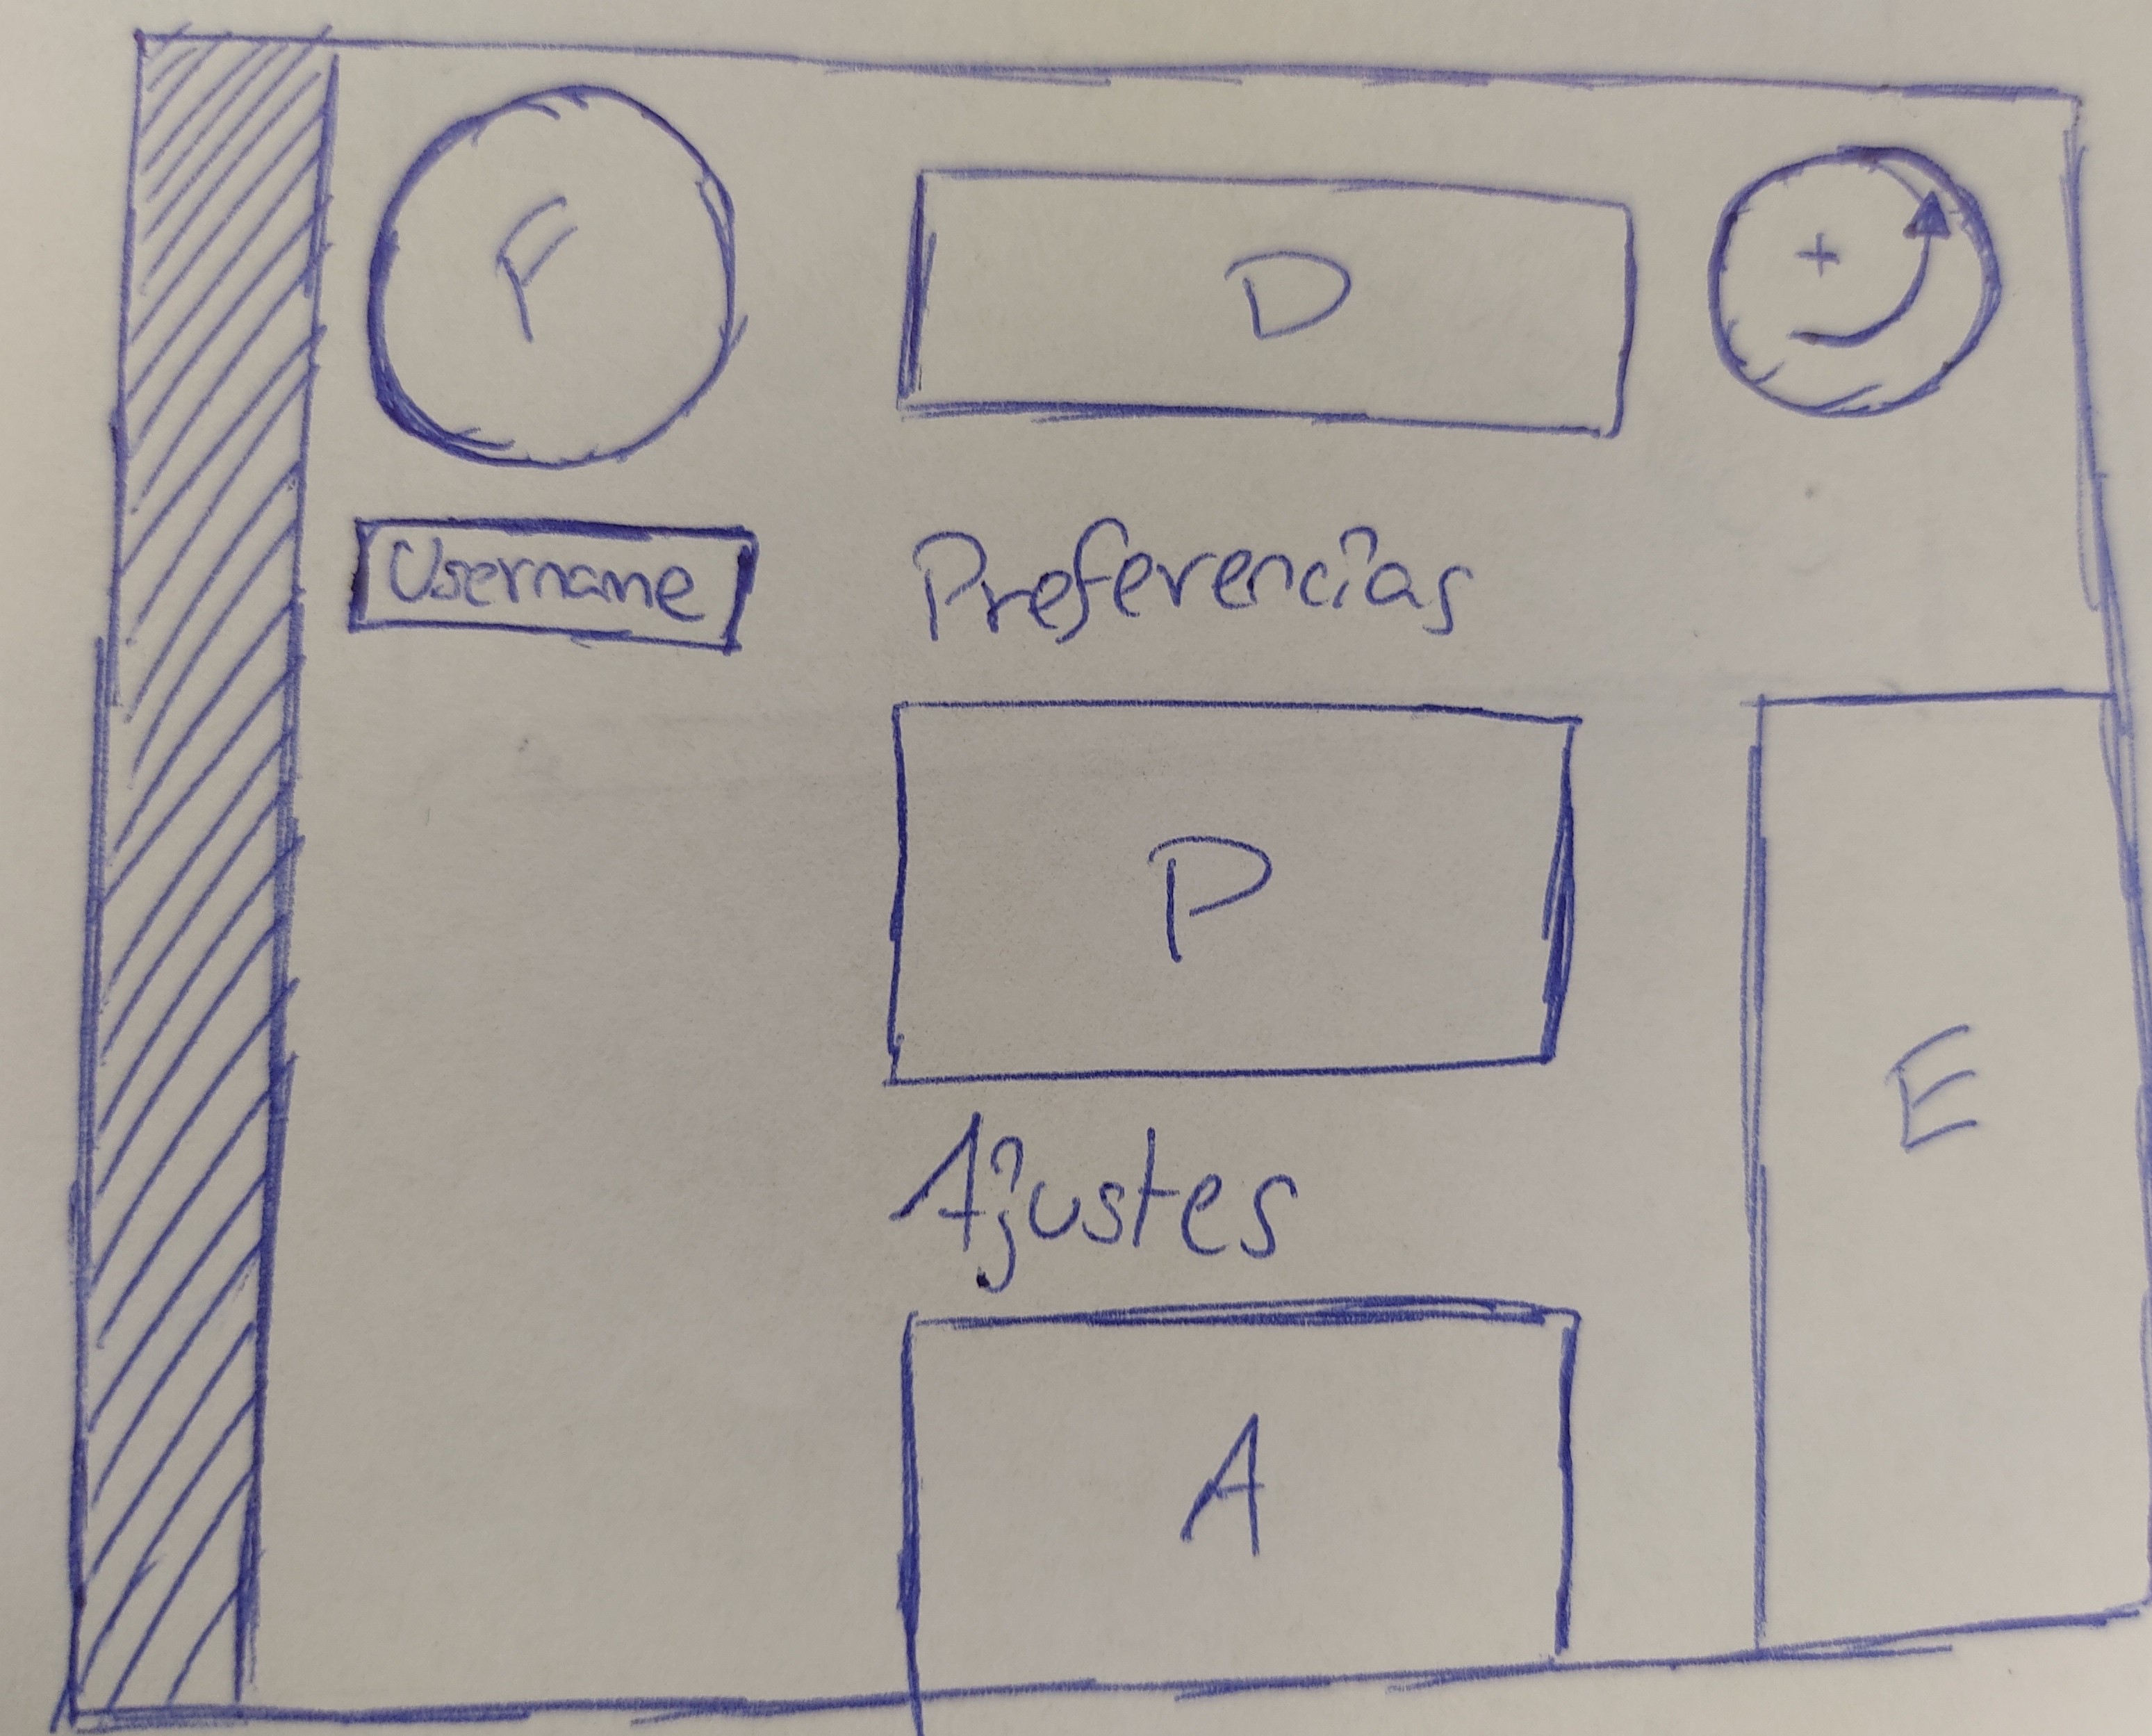 F
D
+
Username
Preferencias
P
E
Ajustes
A